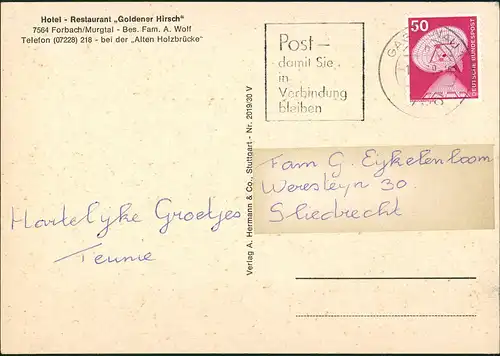 Hotel - Restaurant „Goldener Hirsch"
7564 Forbach/Murgtal - Bes. Fam. A. Wolf
Telefon (07228) 218 - bei der „Alten Holzbrücke"
Post -
damit Sie
in
Verbindung
bleiben
50
DEUTSCHE BUNDESPOST
Verlag A. Hermann & Co., Stuttgart - Nr. 2019/30 V
Fam G. Eykelenboom
30
Sliedrecht
Hartelyke Groetjes
Teunie